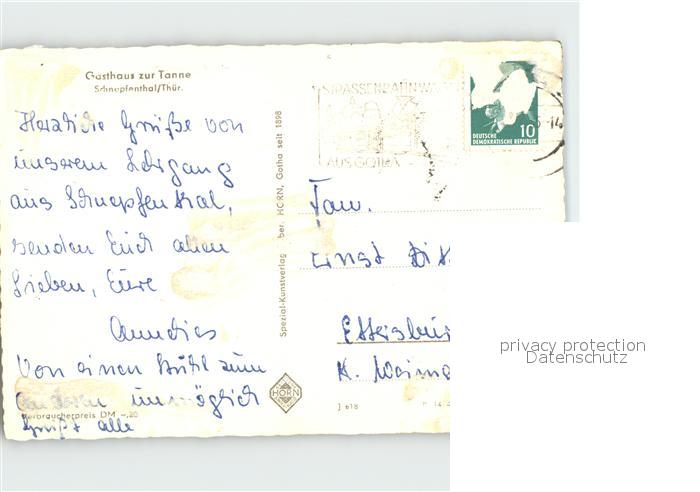 Gasthaus zur Tanne
Schnepfenthal/Thür.
Herzliche Grüße von
unserem Lehrgang
aus Schnepfenthal,
senden Euch allen
Lieben, Eure
Annelies
Von einen Stuhl zum
anderen unmöglich
Grüßt alle
Verbraucherpreis DM -,20
Spezial-Kunstverlag ber. HORN, Gotha seit 1898
HORN
STRASSENBAHNWA
AUS GOTHA
10
DEUTSCHE
DEMOKRATISCHE REPUBLIK
Fam.
Ernst
Ettersbur
K. Weima
J 618
privacy protection
Datenschutz